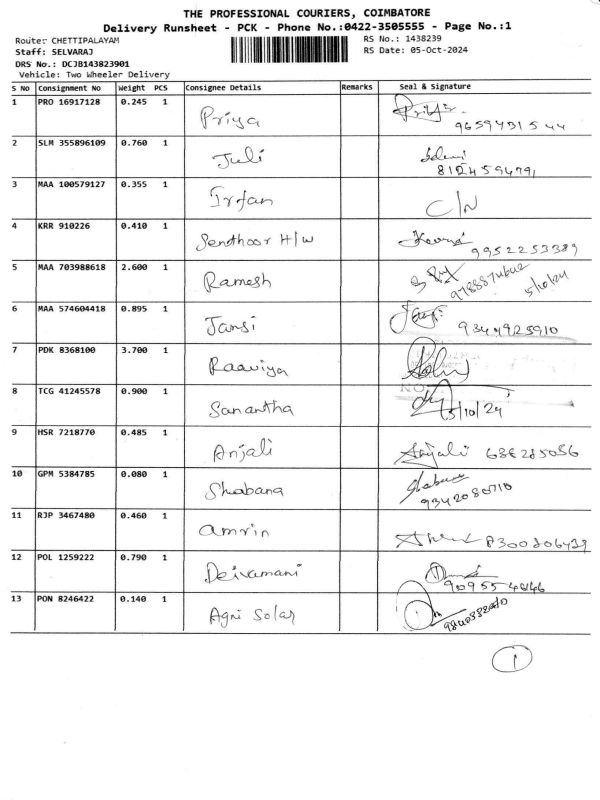 THE PROFESSIONAL COURIERS, COIMBATORE
Delivery Runsheet - PCK - Phone No.:0422-3505555 - Page No.:1
Router: CHETTIPALAYAM RS No.: 1438239
Staff: SELVARAJ RS Date: 05-Oct-2024
DRS No.: DCJB143823901
Vehicle: Two Wheeler Delivery
S No Consignment No Weight PCS Consignee Details Remarks Seal & Signature
1 PRO 16917128 0.245 1 Priya
2 SLM 355896109 0.760 1 Juli
3 MAA 100579127 0.355 1 Irfan C/N
4 KRR 910226 0.410 1 Sendhoor H/W 9952253389
5 MAA 703988618 2.600 1 Ramesh 5/10/24
6 MAA 574604418 0.895 1 Jansi 9344925910
7 PDK 8368100 3.700 1 Raaviya
8 TCG 41245578 0.900 1 Sanantha 5/10/24
9 HSR 7218770 0.485 1 Anjali Anjali
10 GPM 5384785 0.080 1 Shabana Shabana 9342080710
11 RJP 3467480 0.460 1 amrin
12 POL 1259222 0.790 1 Deivamani
13 PON 8246422 0.140 1 Agni Solar
1